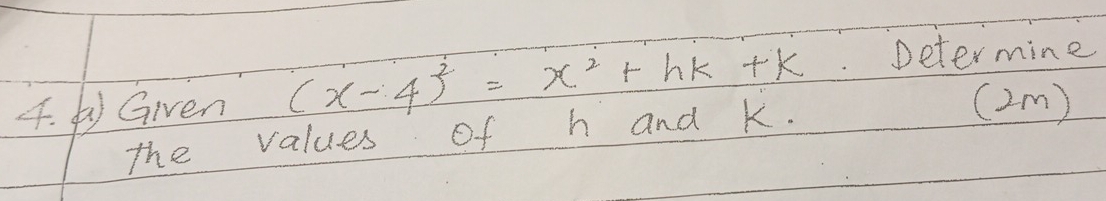 4. a) Given (x-4)² = x² + hk + k. Determine
the values of h and k. (2m)